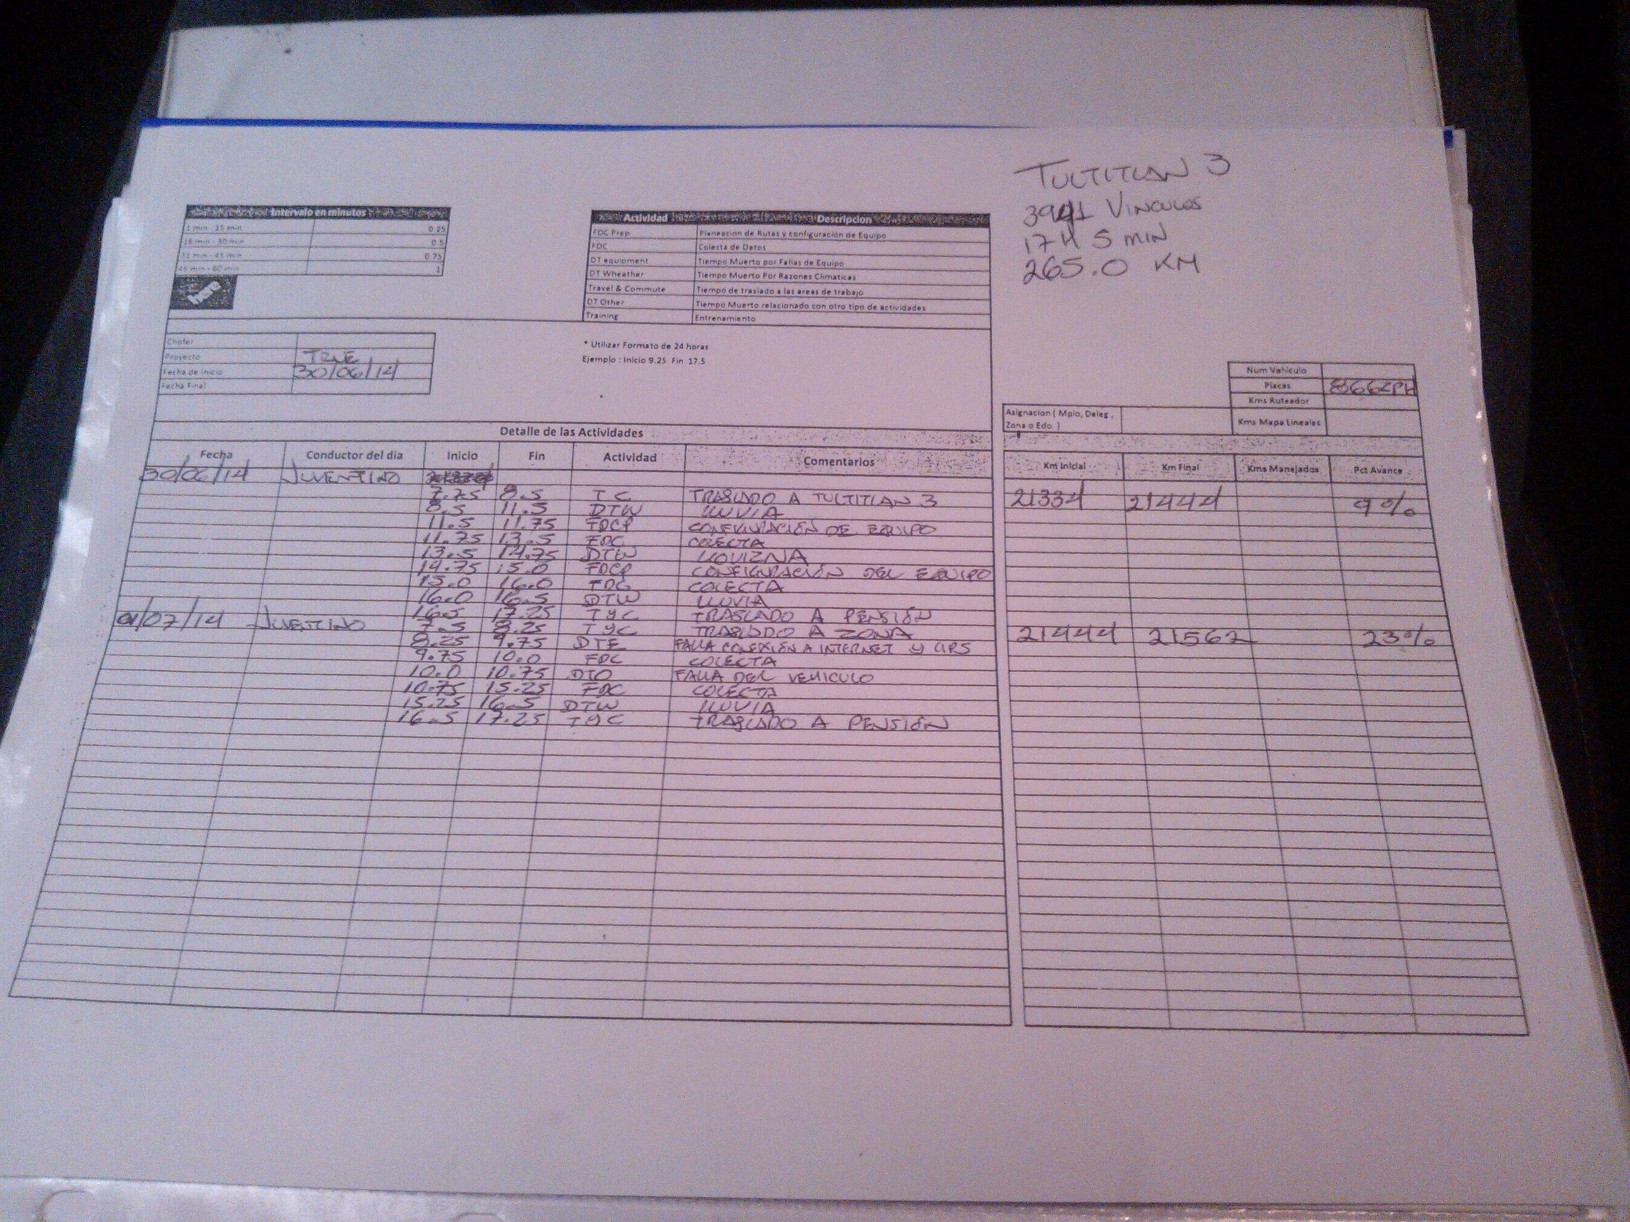 TULTITLAN 3
3941 VINCULOS
17 H 5 MIN
265.0 KM
Intervalo en minutos
1 min - 15 min 0.25
16 min - 30 min 0.5
31 min - 45 min 0.75
46 min - 60 min 1
here
Actividad Descripcion
FDC Prep Planeacion de Rutas y configuración de Equipo
FDC Colecta de Datos
DT equipment Tiempo Muerto por Fallas de Equipo
DT Wheather Tiempo Muerto Por Razones Climaticas
Travel & Commute Tiempo de traslado a las areas de trabajo
DT Other Tiempo Muerto relacionado con otro tipo de actividades
Training Entrenamiento
* Utilizar Formato de 24 horas
Ejemplo : Inicio 9.25 Fin 17.5
Chofer
Proyecto
Fecha de Inicio 30/06/14
Fecha Final
Num Vehiculo
Placas 866ZPH
Kms Ruteador
Kms Mapa Lineales
Asignacion ( Mpio, Deleg ,
Zona o Edo. )
Detalle de las Actividades
Fecha Conductor del dia Inicio Fin Actividad Comentarios Km Inicial Km Final Kms Manejados Pct Avance
30/06/14 JUVENTINO
7.75 8.5 TC TRASLADO A TULTITLAN 3 21334 21444 9%
8.5 11.5 DTW LLUVIA
11.5 11.75 FDCP CONFIGURACIÓN DE EQUIPO
11.75 13.5 FDC COLECTA
13.5 14.75 DTW LLOVIZNA
14.75 15.0 FDCP CONFIGURACIÓN DEL EQUIPO
15.0 16.0 FDC COLECTA
16.0 16.5 DTW LLUVIA
16.5 17.25 TYC TRASLADO A PENSIÓN
01/07/14 JUVENTINO 7.5 8.25 TYC TRASLADO A ZONA 21444 21562 23%
8.25 9.75 DTE FALLA CONEXIÓN A INTERNET Y GPS
9.75 10.0 FDC COLECTA
10.0 10.75 DTO FALLA DEL VEHICULO
10.75 15.25 FDC COLECTA
15.25 16.5 DTW LLUVIA
16.5 17.25 TYC TRASLADO A PENSIÓN